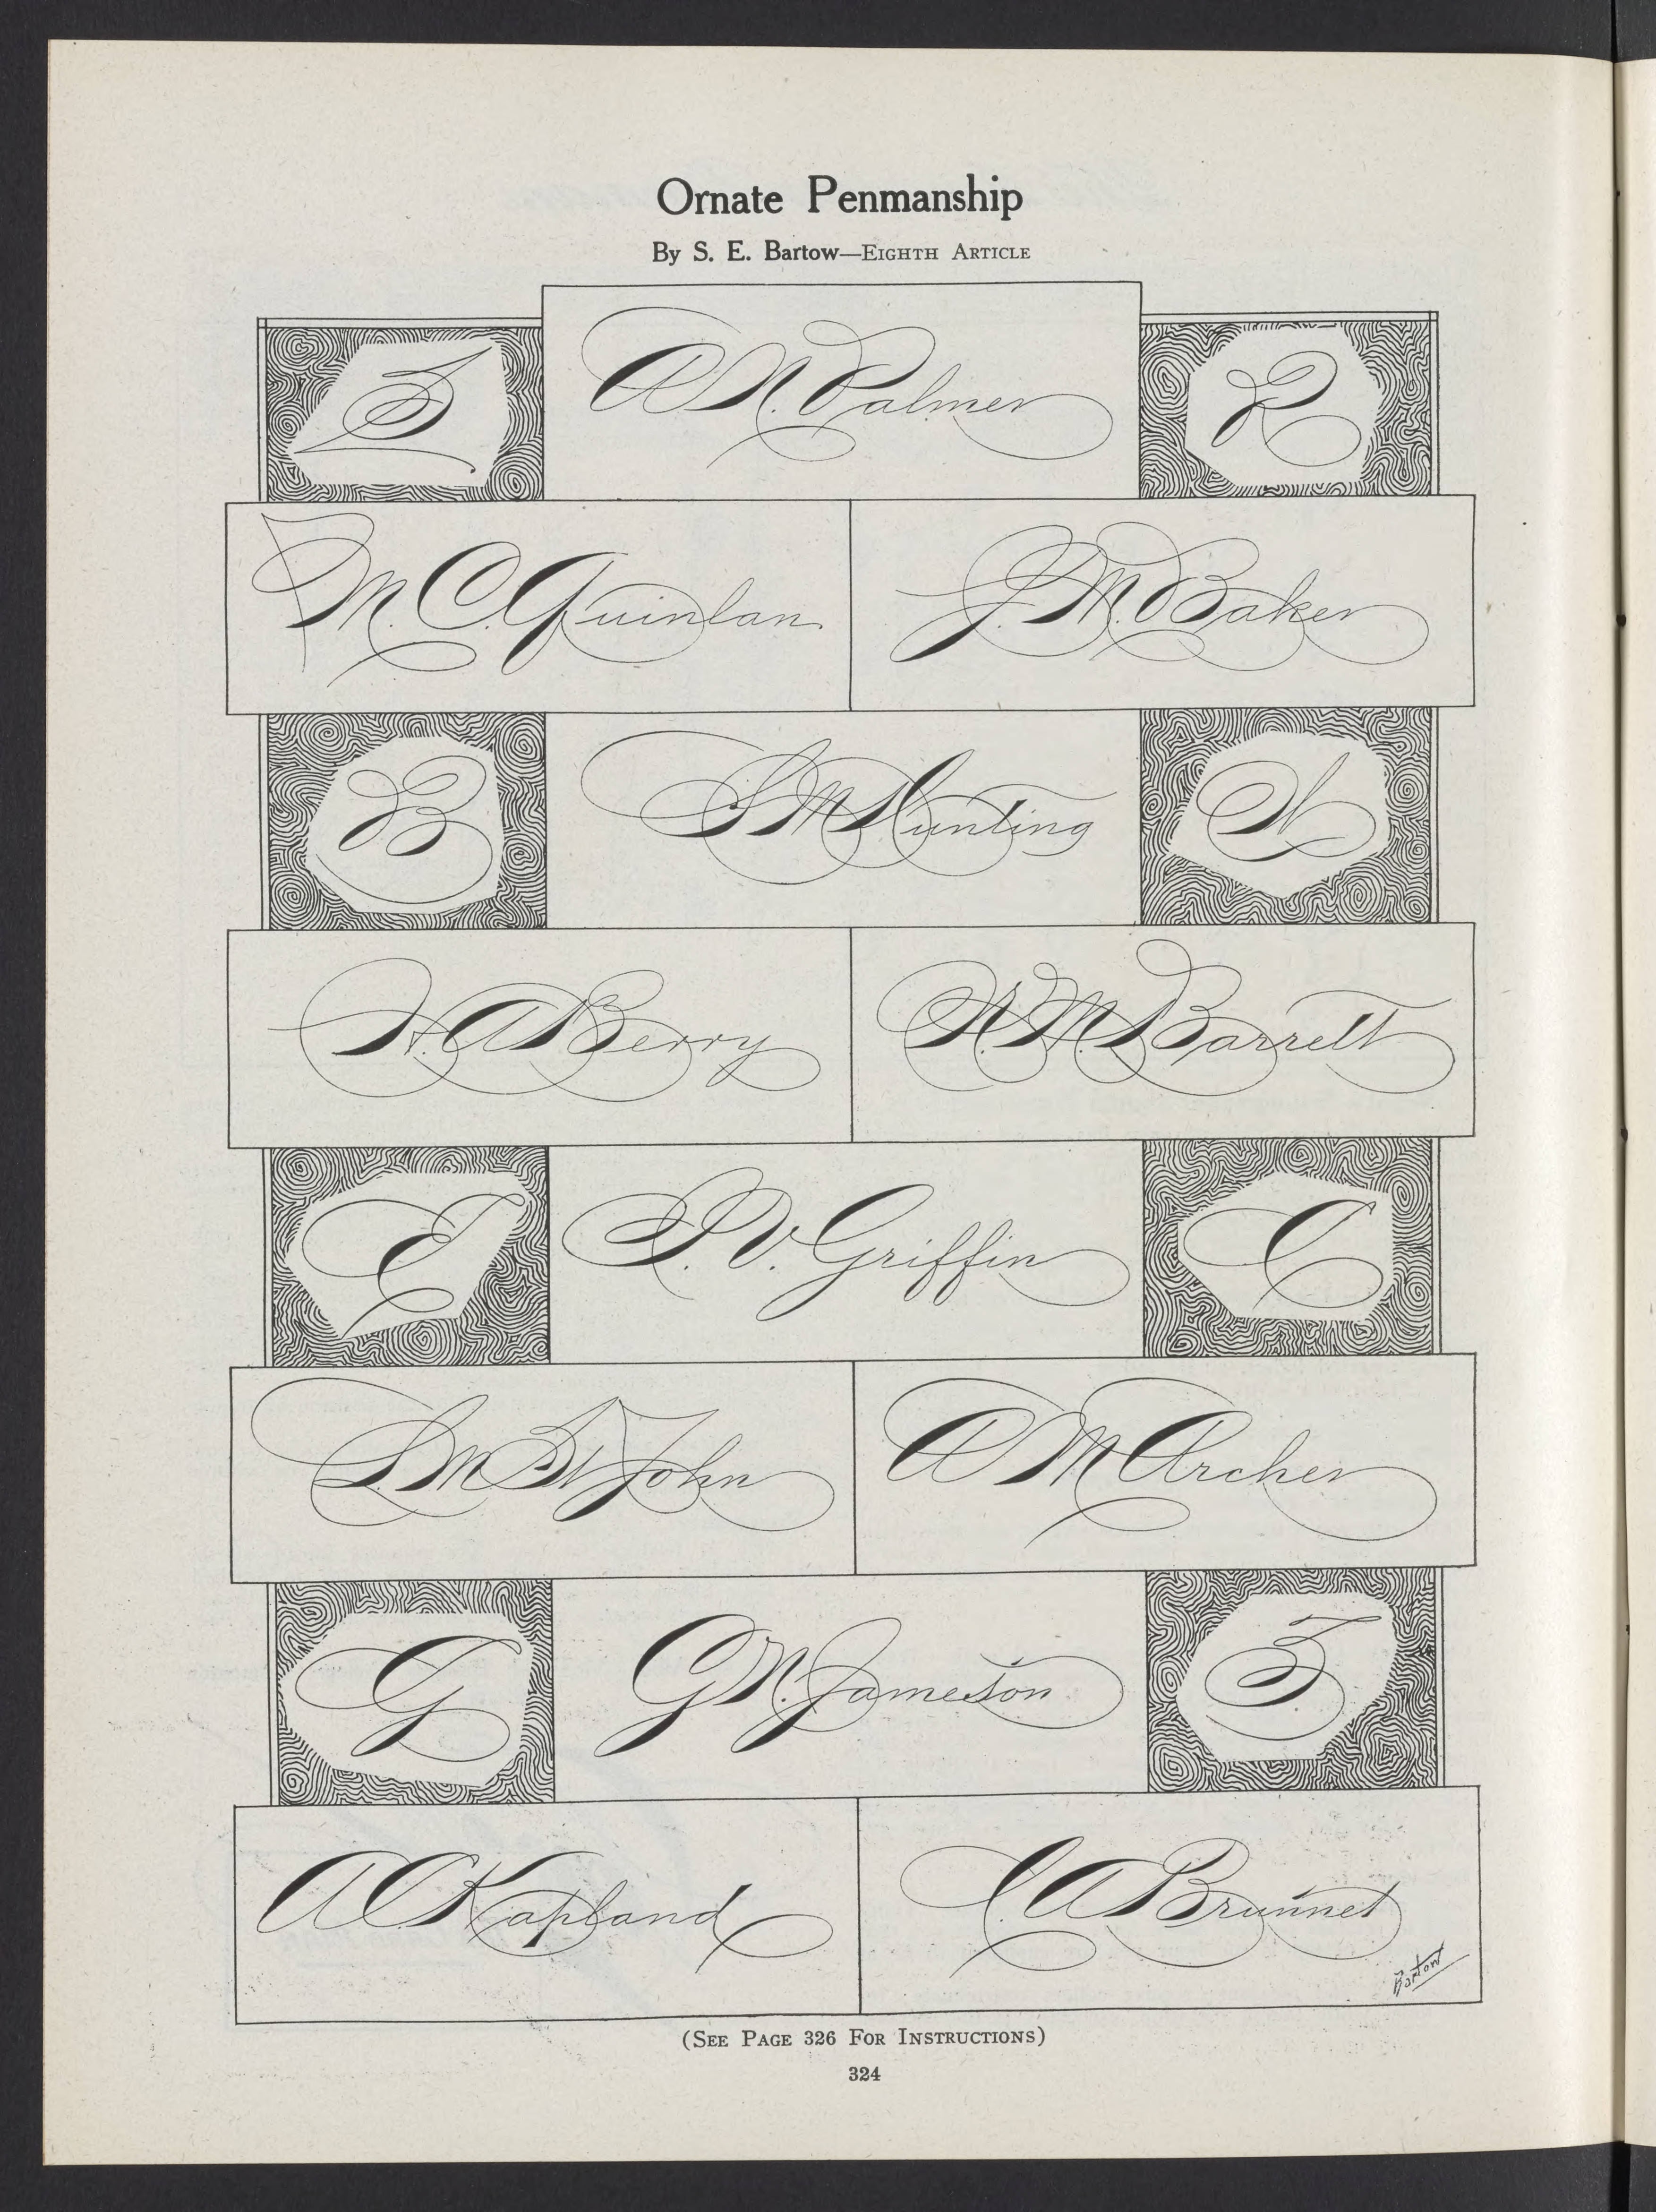 Ornate Penmanship
By S. E. Bartow—Eighth Article
A. N. Palmer
M. C. Quinlan.
J. M. Baker
B
S M Hunting
H. A Berry
W. M. Barrett
E
P. V. Griffin
C
S. M St John
A M Archer
G
G N. Jameson
A C. Kapland
C. A Brunnet
Bartow
(See Page 326 For Instructions)
324